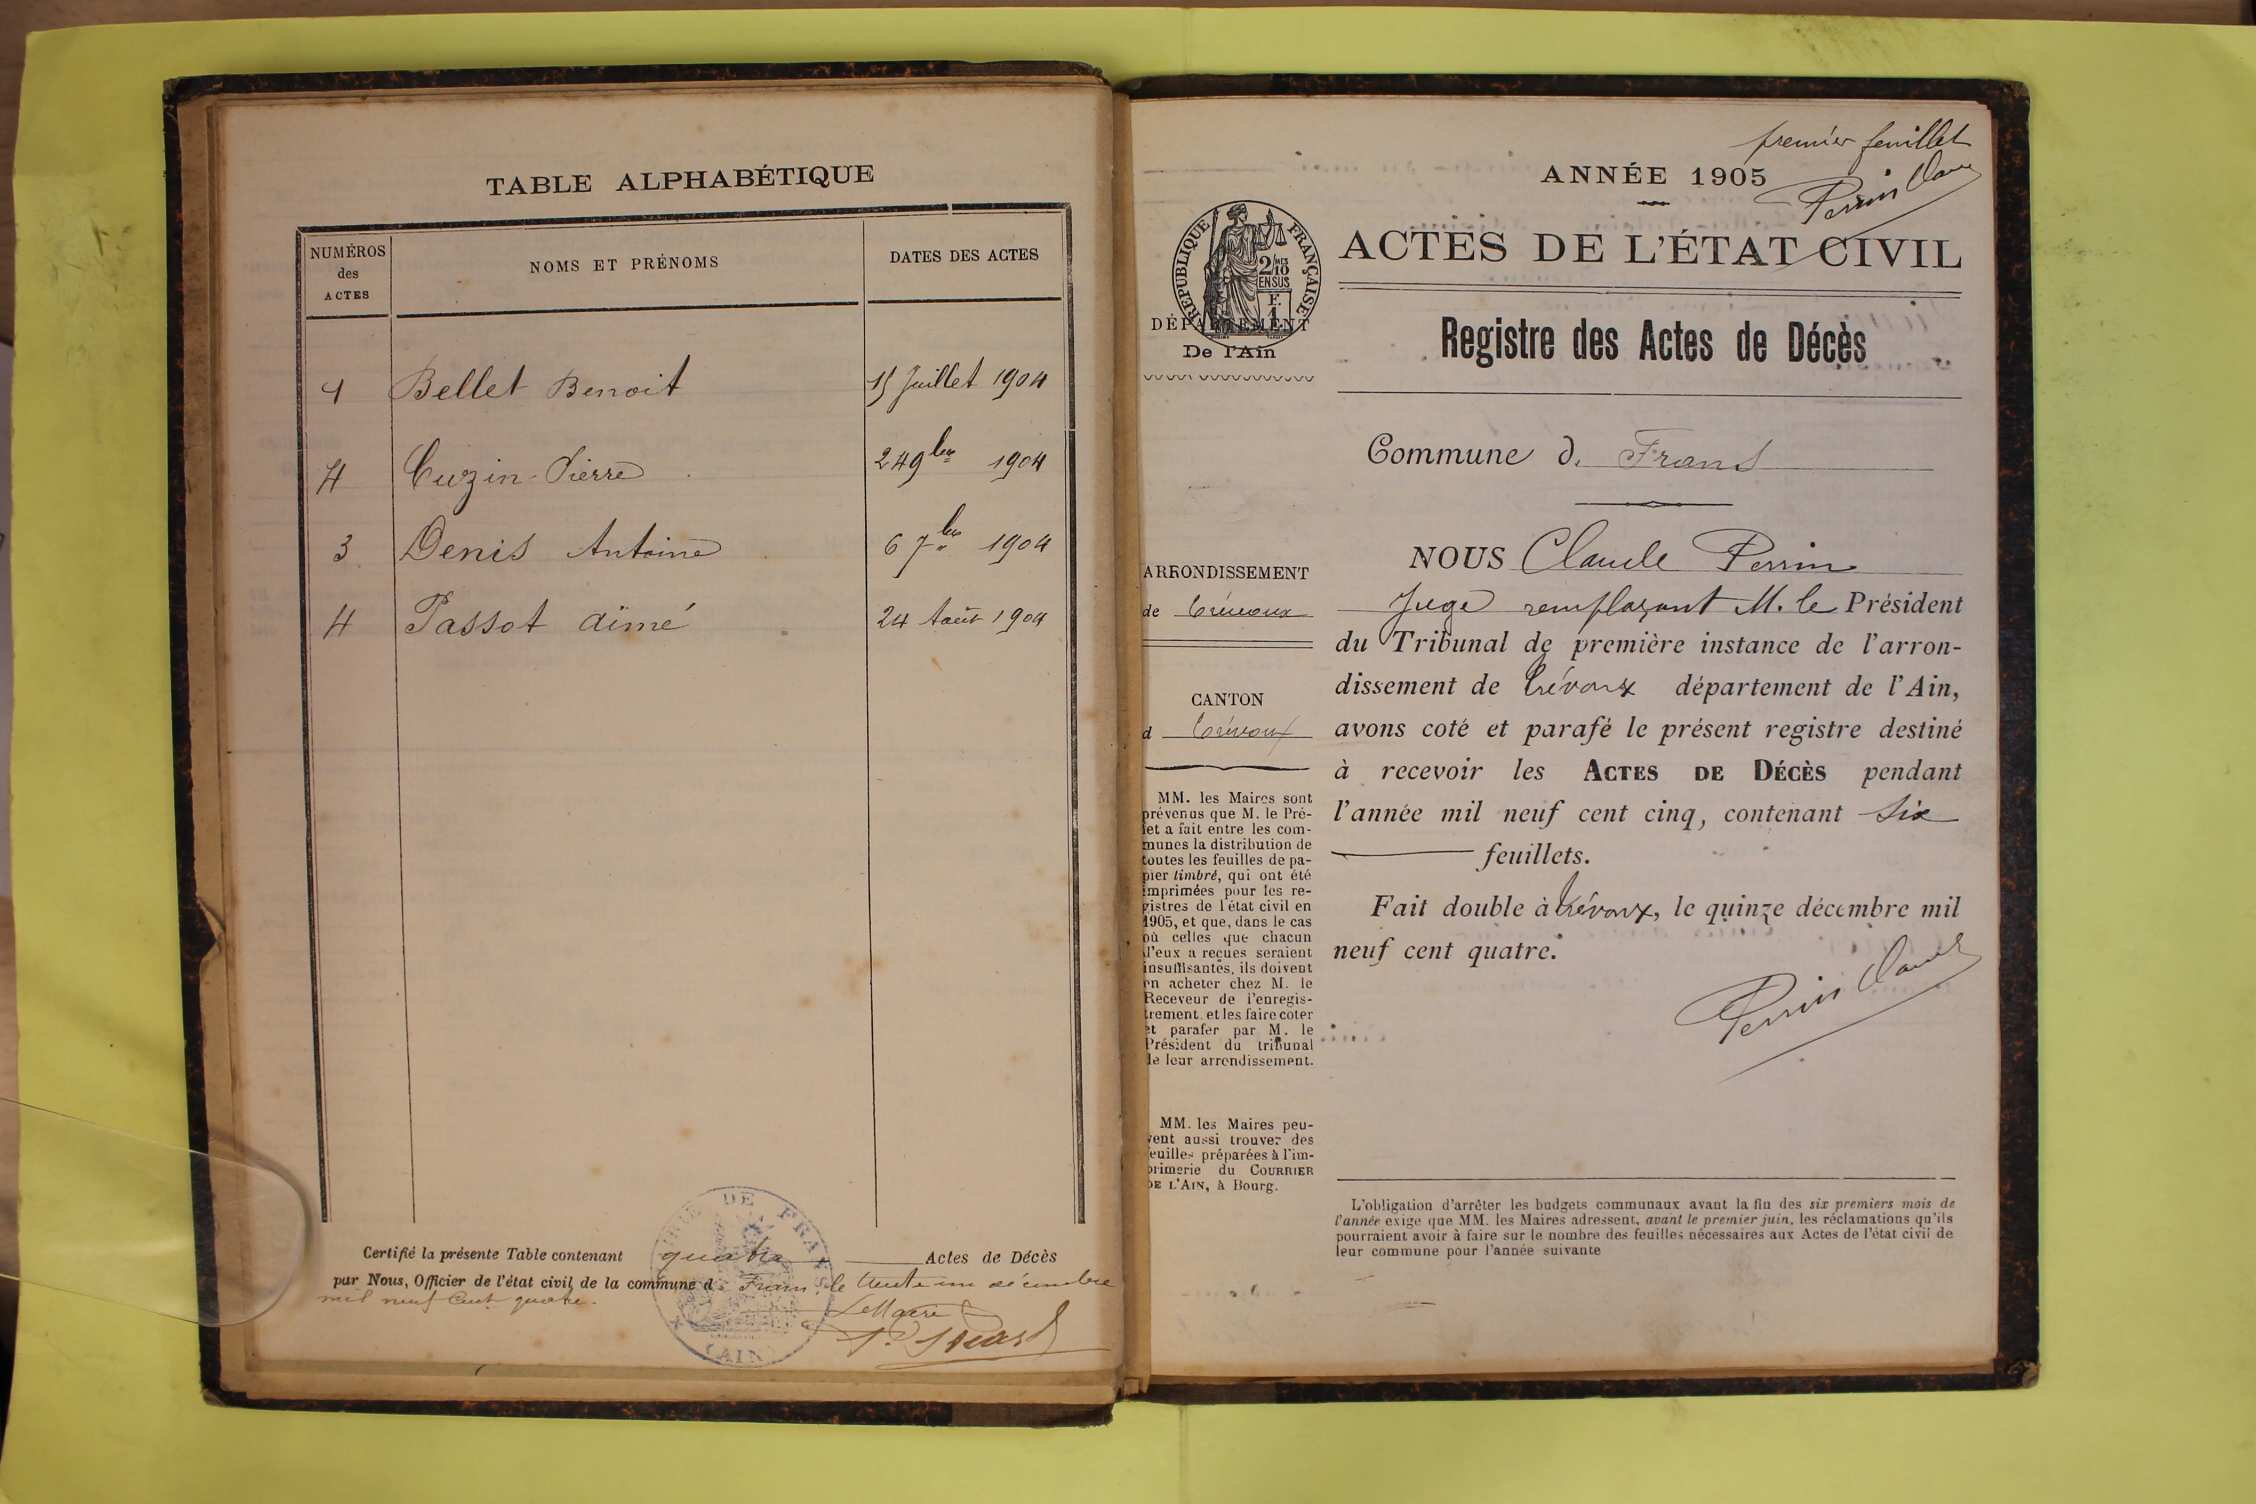 TABLE ALPHABÉTIQUE
NUMÉROS des ACTES
NOMS ET PRÉNOMS
DATES DES ACTES
1 Bellet Benoit 15 Juillet 1904
4 Cuzin Pierre 24 9bre 1904
3 Denis Antoine 6 7bre 1904
4 Passot aimé 24 Août 1904
Certifié la présente Table contenant quatre Actes de Décès
par Nous, Officier de l'état civil de la commune d. Frans le trente un décembre
mil neuf cent quatre.
Le Maire
MAIRIE DE FRANS
(AIN)
premier feuillet
Perrin Claude
ANNÉE 1905
ACTES DE L'ÉTAT CIVIL
RÉPUBLIQUE FRANÇAISE
2/10 MES
EN SUS
F.
1
DÉPARTEMENT
De l'Ain
Registre des Actes de Décès
Commune d. Frans
ARRONDISSEMENT
de Trévoux
CANTON
d Trévoux
MM. les Maires sont
prévenus que M. le Pré-
fet a fait entre les com-
munes la distribution de
toutes les feuilles de pa-
pier timbré, qui ont été
imprimées pour les re-
gistres de l'état civil en
1905, et que, dans le cas
où celles que chacun
d'eux a reçues seraient
insuffisantes, ils doivent
en acheter chez M. le
Receveur de l'enregis-
trement. et les faire coter
et parafer par M. le
Président du tribunal
de leur arrondissement.
MM. les Maires peu-
vent aussi trouver des
feuilles préparées à l'im-
primerie du COURRIER
DE L'AIN, à Bourg.
NOUS Claude Perrin
Juge remplaçant M. le Président
du Tribunal de première instance de l'arron-
dissement de Trévoux département de l'Ain,
avons coté et parafé le présent registre destiné
à recevoir les ACTES DE DÉCÈS pendant
l'année mil neuf cent cinq, contenant six
feuillets.
Fait double à Trévoux, le quinze décembre mil
neuf cent quatre.
Perrin Claude
L'obligation d'arrêter les budgets communaux avant la fin des six premiers mois de
l'année exige que MM. les Maires adressent, avant le premier juin, les réclamations qu'ils
pourraient avoir à faire sur le nombre des feuilles nécessaires aux Actes de l'état civil de
leur commune pour l'année suivante